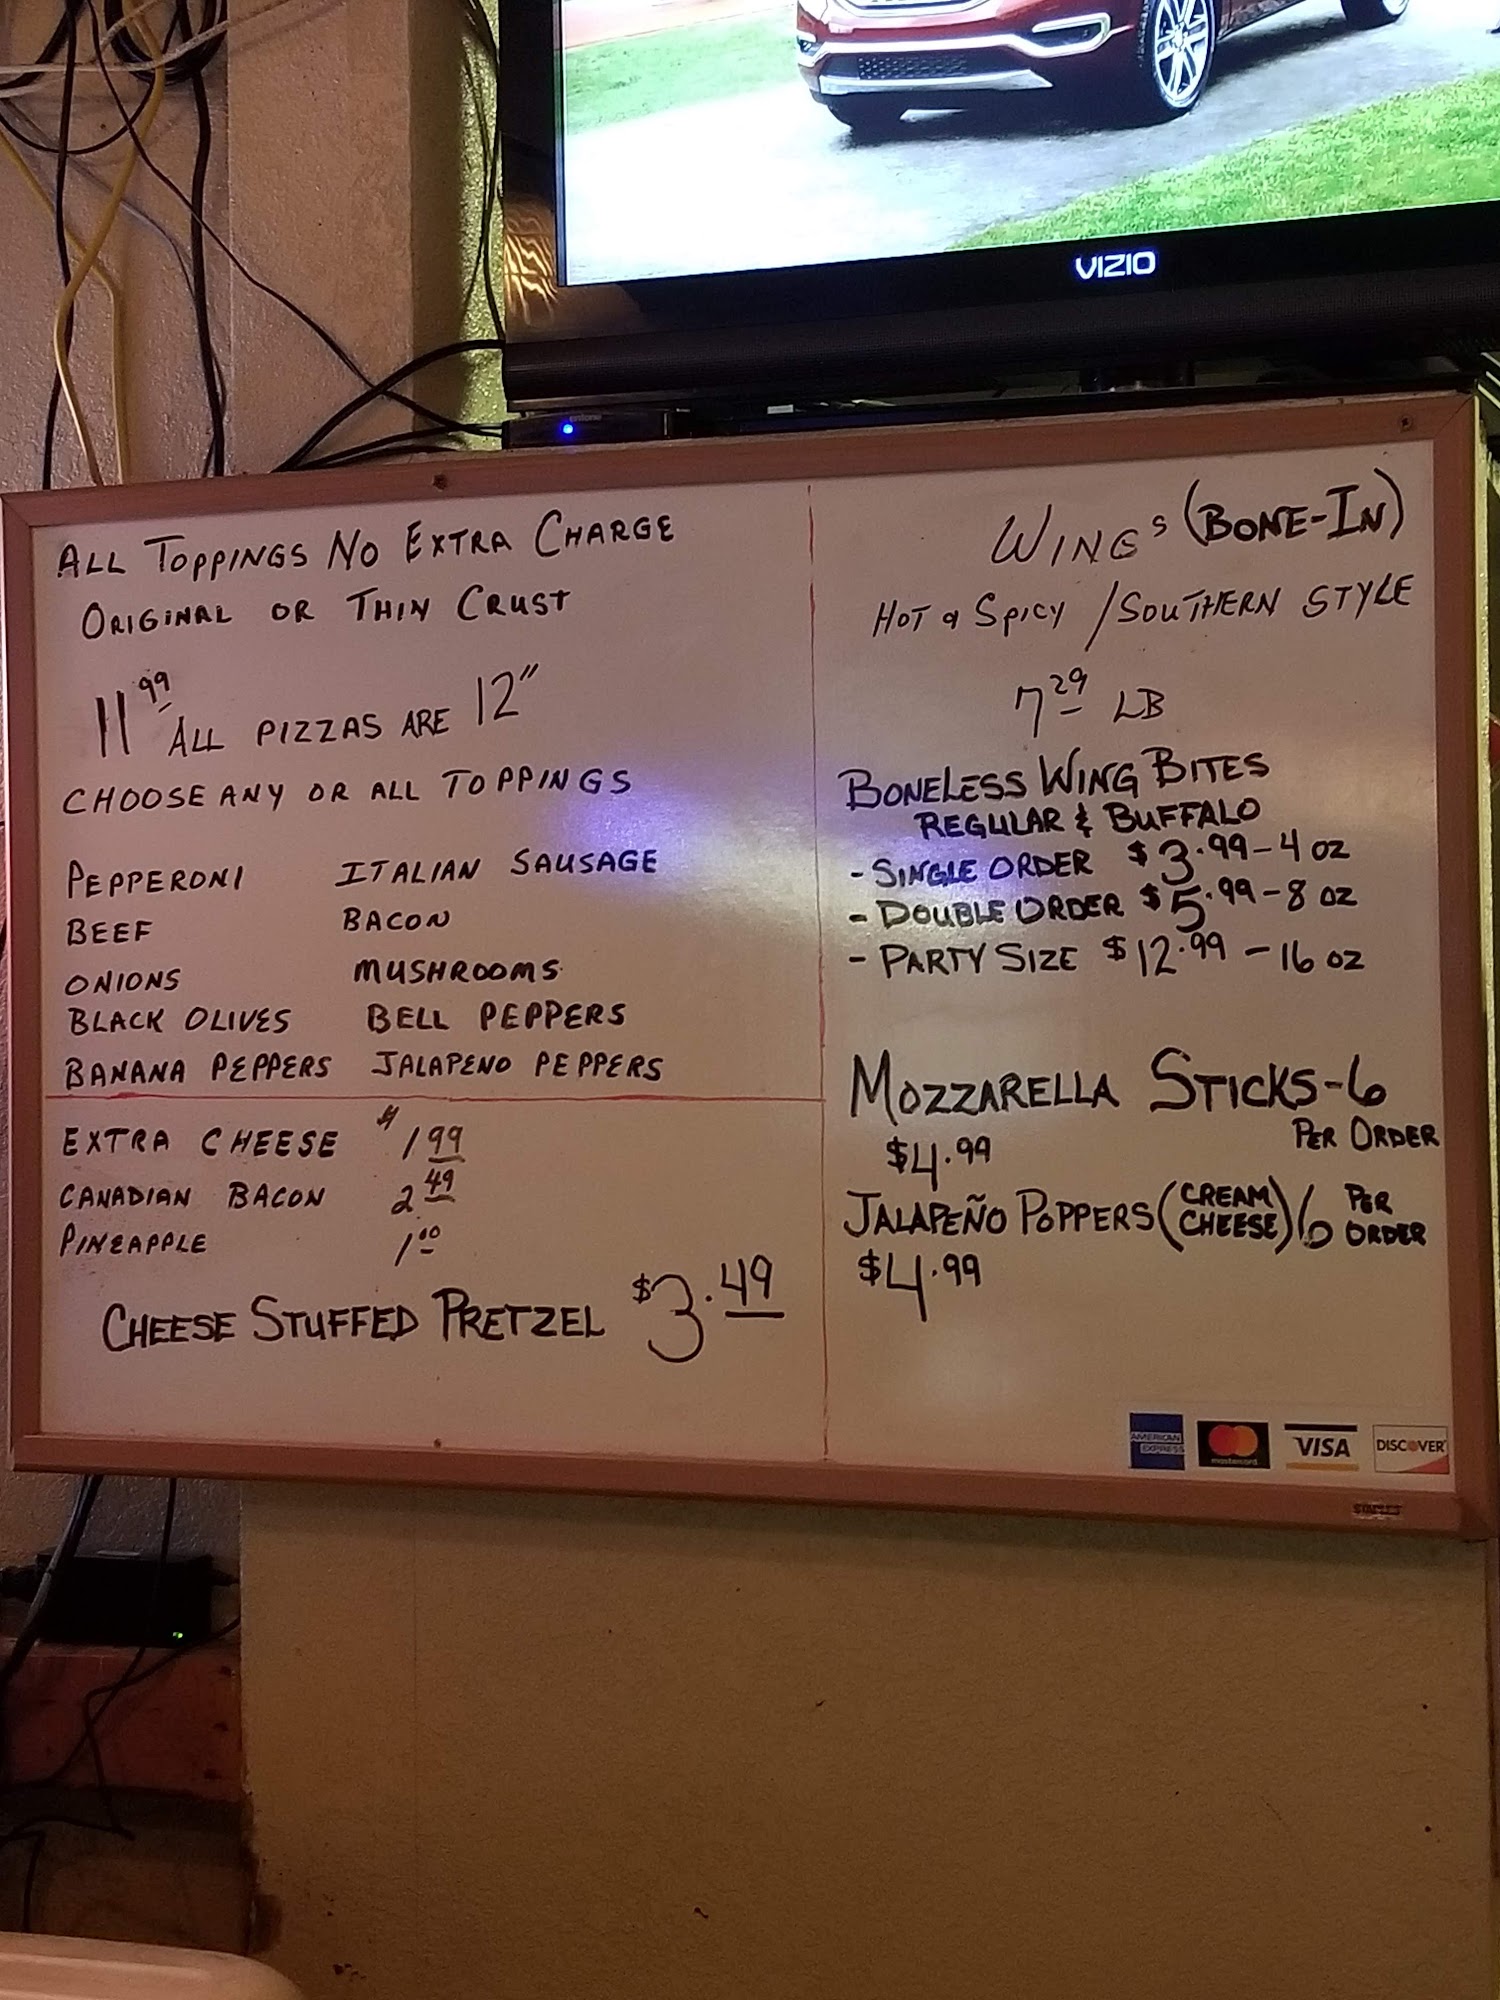 VIZIO
ALL TOPPINGS NO EXTRA CHARGE
ORIGINAL OR THIN CRUST
11 99 ALL PIZZAS ARE 12"
CHOOSE ANY OR ALL TOPPINGS
PEPPERONI ITALIAN SAUSAGE
BEEF BACON
ONIONS MUSHROOMS
BLACK OLIVES BELL PEPPERS
BANANA PEPPERS JALAPENO PEPPERS
EXTRA CHEESE $1 99
CANADIAN BACON 2 49
PINEAPPLE 1 00
CHEESE STUFFED PRETZEL $3.49
WINGS (BONE-IN)
HOT & SPICY / SOUTHERN STYLE
7 29 LB
BONELESS WING BITES
REGULAR & BUFFALO
- SINGLE ORDER $3.99 - 4 OZ
- DOUBLE ORDER $5.99 - 8 OZ
- PARTY SIZE $12.99 - 16 OZ
MOZZARELLA STICKS - 6
PER ORDER
$4.99
JALAPEÑO POPPERS (CREAM CHEESE) 6 PER ORDER
$4.99
AMERICAN EXPRESS
mastercard
VISA
DISCOVER
STAPLES